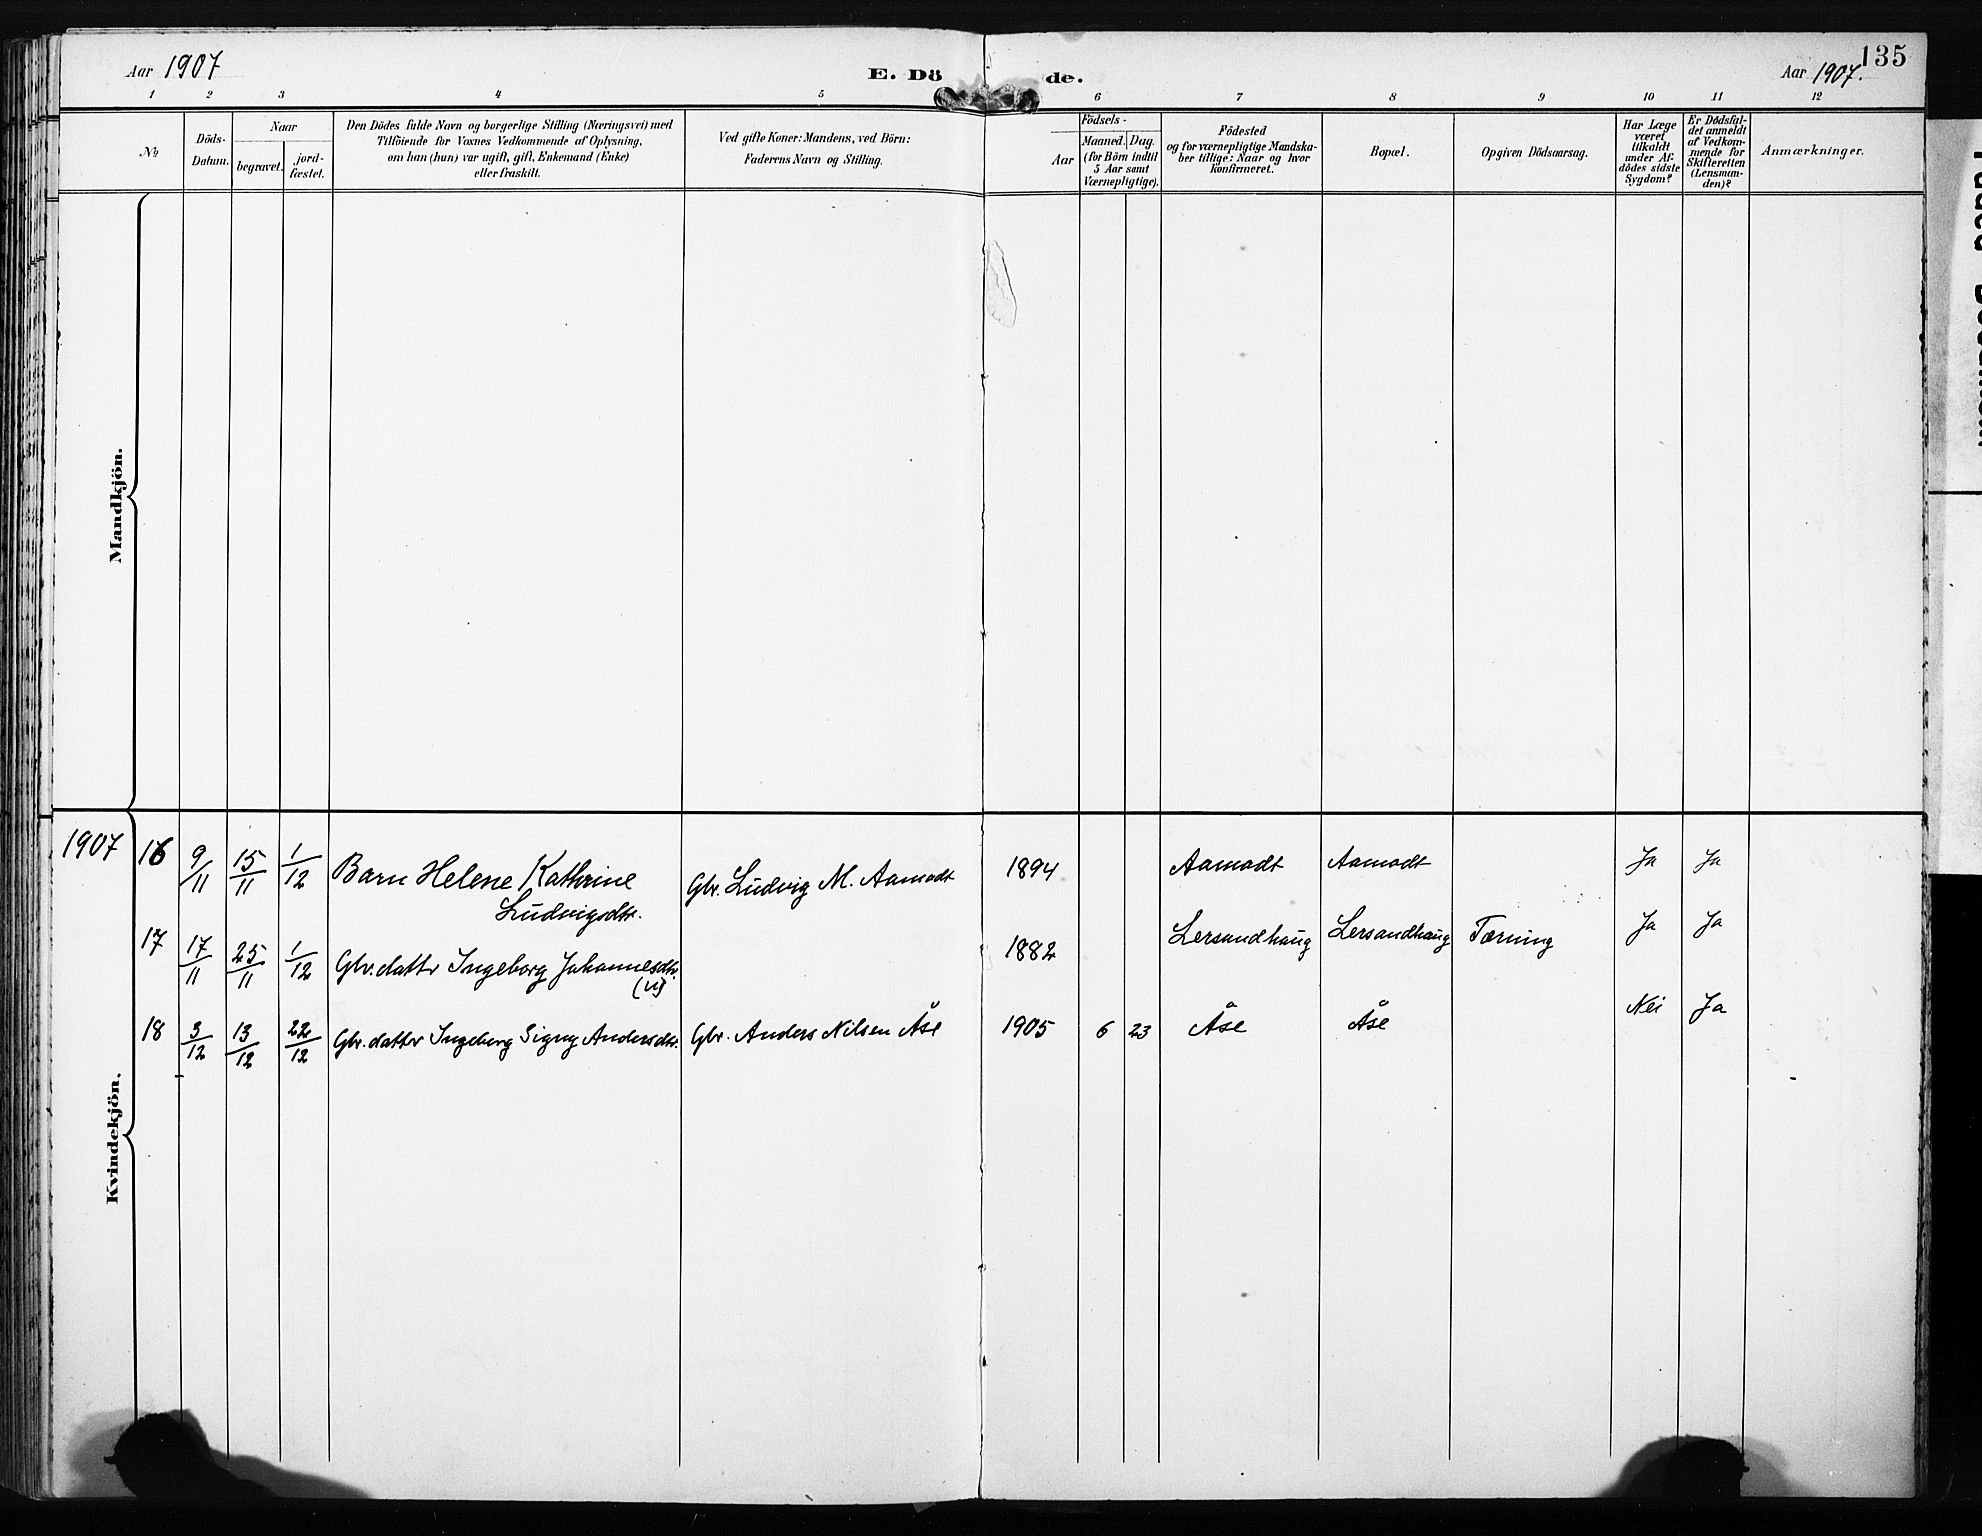 135
Aar 1907
E. Dö
de.
Aar 1907.
1 2 3 4 5 6 7 8 9 10 11 12
No
Döds-
Datum.
Naar
begravet.
jord-
fæstet.
Den Dödes fulde Navn og borgerlige Stilling (Næringsvei) med
Tilföiende for Voxnes Vedkommende af Oplysning,
om han (hun) var ugift, gift, Enkemand (Enke)
eller fraskilt.
Ved gifte Koner: Mandens, ved Börn:
Faderens Navn og Stilling.
Födsels-
Aar
Maaned.
Dag.
(for Börn indtil
5 Aar samt
Værnepligtige).
Födested
og for værnepligtige Mandska-
ber tillige: Naar og hvor
konfirmeret.
Bopæl.
Opgiven Dödsaarsag.
Har Læge
været
tilkaldt
under Af-
dödes sidste
Sygdom?
Er Dödsfal-
det anmeldt
af Vedkom-
mende for
Skifteretten
(Lensman-
den)?
Anmærkninger.
Mandkjön.
Kvindekjön.
1907 16 9/11 15/11 1/12 Barn Helene Kathrine Gbr. Ludvig M. Aamodt 1894 Aamodt Aamodt Ja Ja
Ludvigsdtr.
17 17/11 25/11 1/12 Gbr. datter Ingeborg Johannesdtr. 1882 Lersandhaug Lersandhaug Tæring Ja Ja
18 3/12 13/12 22/12 Gbr. datter Ingeborg Signy Andersdtr. Gbr. Anders Nilsen Åse 1905 6 23 Åse Åse Nei Ja